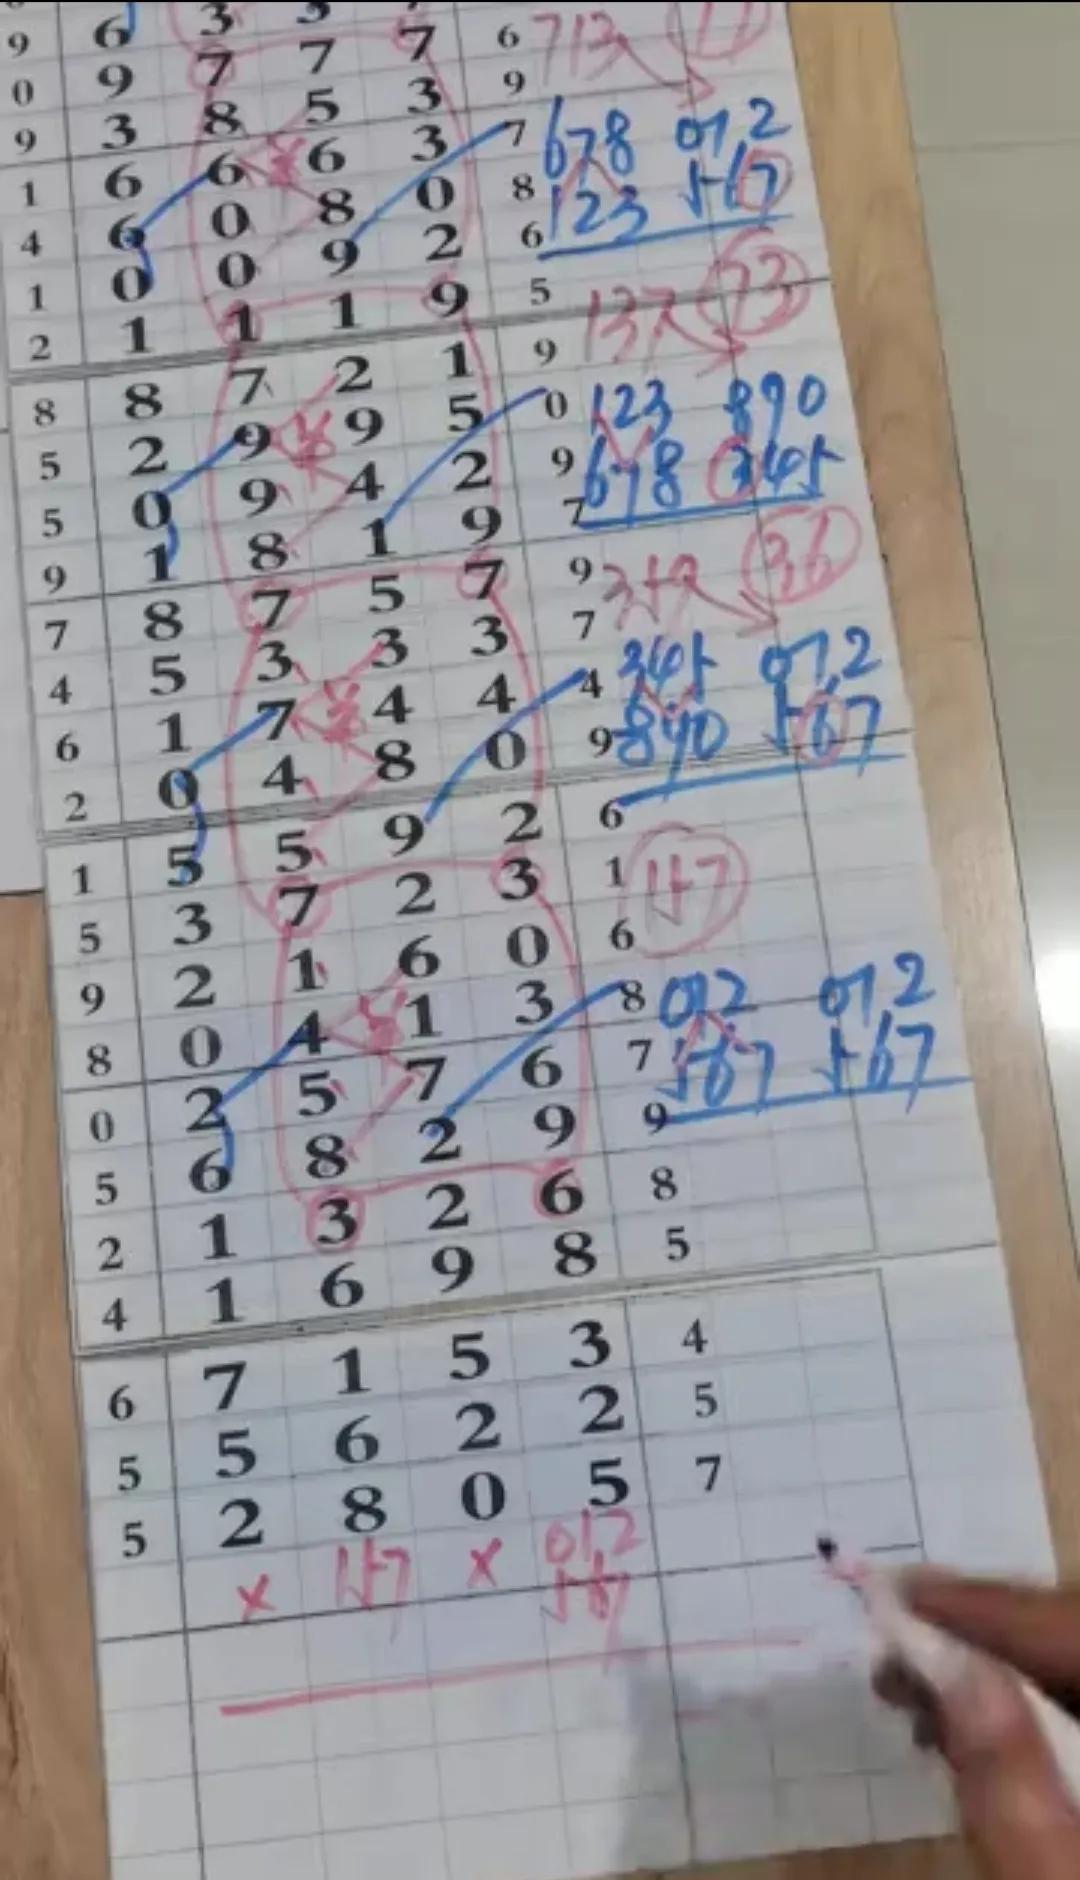 9 6 3 3
0 9 7 7 7 6 713 17
9 3 8 5 3 9
1 6 6 6 3 7 678 01,2
4 6 0 8 0 8 123 567
1 0 0 9 2 6
2 1 1 1 9 5 137 73
8 8 7 2 1 9
5 2 9 9 5 0 123 890
5 0 9 4 2 9 678 345
9 1 8 1 9 7
7 8 7 5 7 9 36
4 5 3 3 3 7
6 1 7 4 4 4 345 01,2
2 0 4 8 0 9 890 567
1 5 5 9 2 6
5 3 7 2 3 1 157
9 2 1 6 0 6
8 0 4 1 3 8 01,2 01,2
0 2 5 7 6 7 567 567
5 6 8 2 9 9
2 1 3 2 6 8
4 1 6 9 8 5
6 7 1 5 3 4
5 5 6 2 2 5
5 2 8 0 5 7
× 157 × 01,2
567